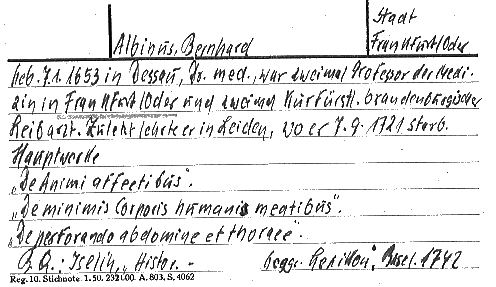 Stadt
Albinus, Bernhard Frankfurt/Oder
Geb. 7.1.1653 in Dessau, Dr. med., war zweimal Professor der Medi-
zin in Frankfurt/Oder und zweimal Kurfürstl. brandenburgischer
Leibarzt. Zuletzt lehrte er in Leiden, wo er 7.9.1721 starb.
Hauptwerke
„De Animi affectibus".
„De minimis Corporis humanis meatibus".
„De perforando abdomine et thorace".
B. Q.: Iselin, „Histor. - geogr. Lexikon", Basel. 1742
Reg. 10. Stichnote. 1. 50. 232100. A. 803, S. 4062